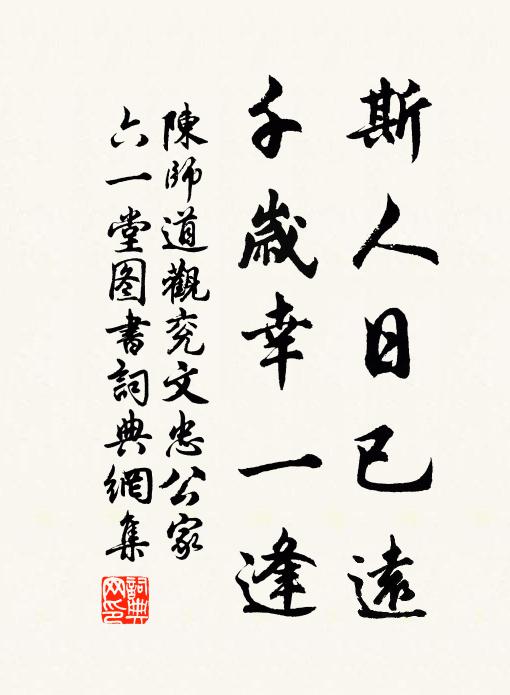 斯人日已遠
千歲幸一逢
陳師道觀兖文忠公家
六一堂图書詞典網集
詞典
网印